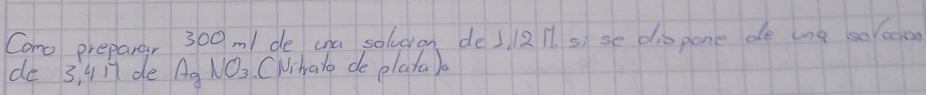 Como preparar 300 ml de una solucion de 1,12 M. si se dispone de una solucion
de 3,4 M de Ag NO3. (Nitrato de plata).